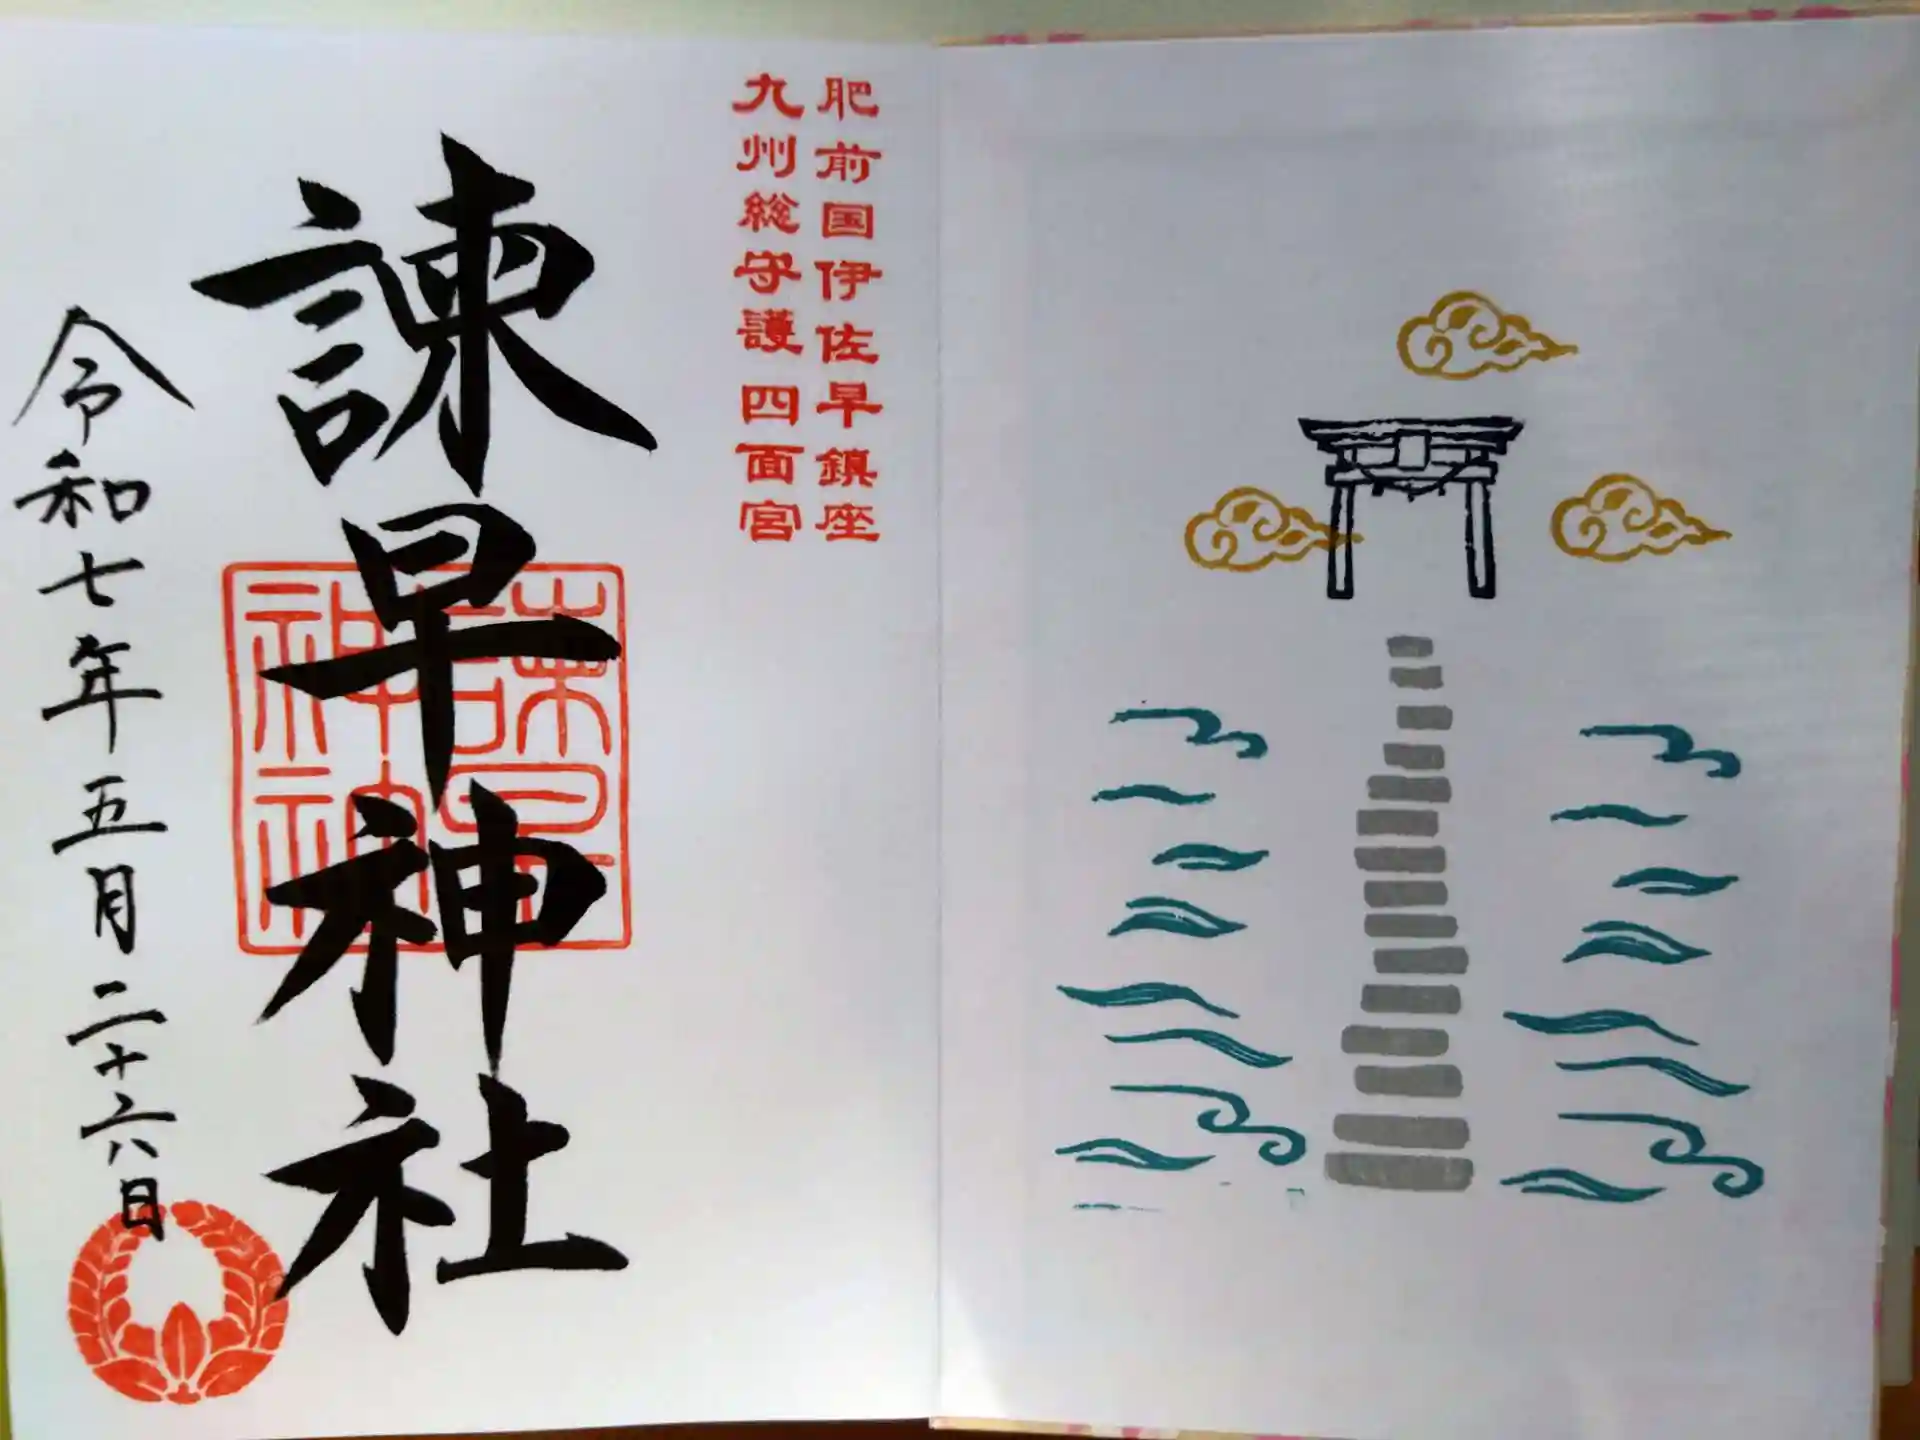 肥前国伊佐早鎮座
九州総守護四面宮
諫早神社
諫早
神社
令和七年五月二十六日